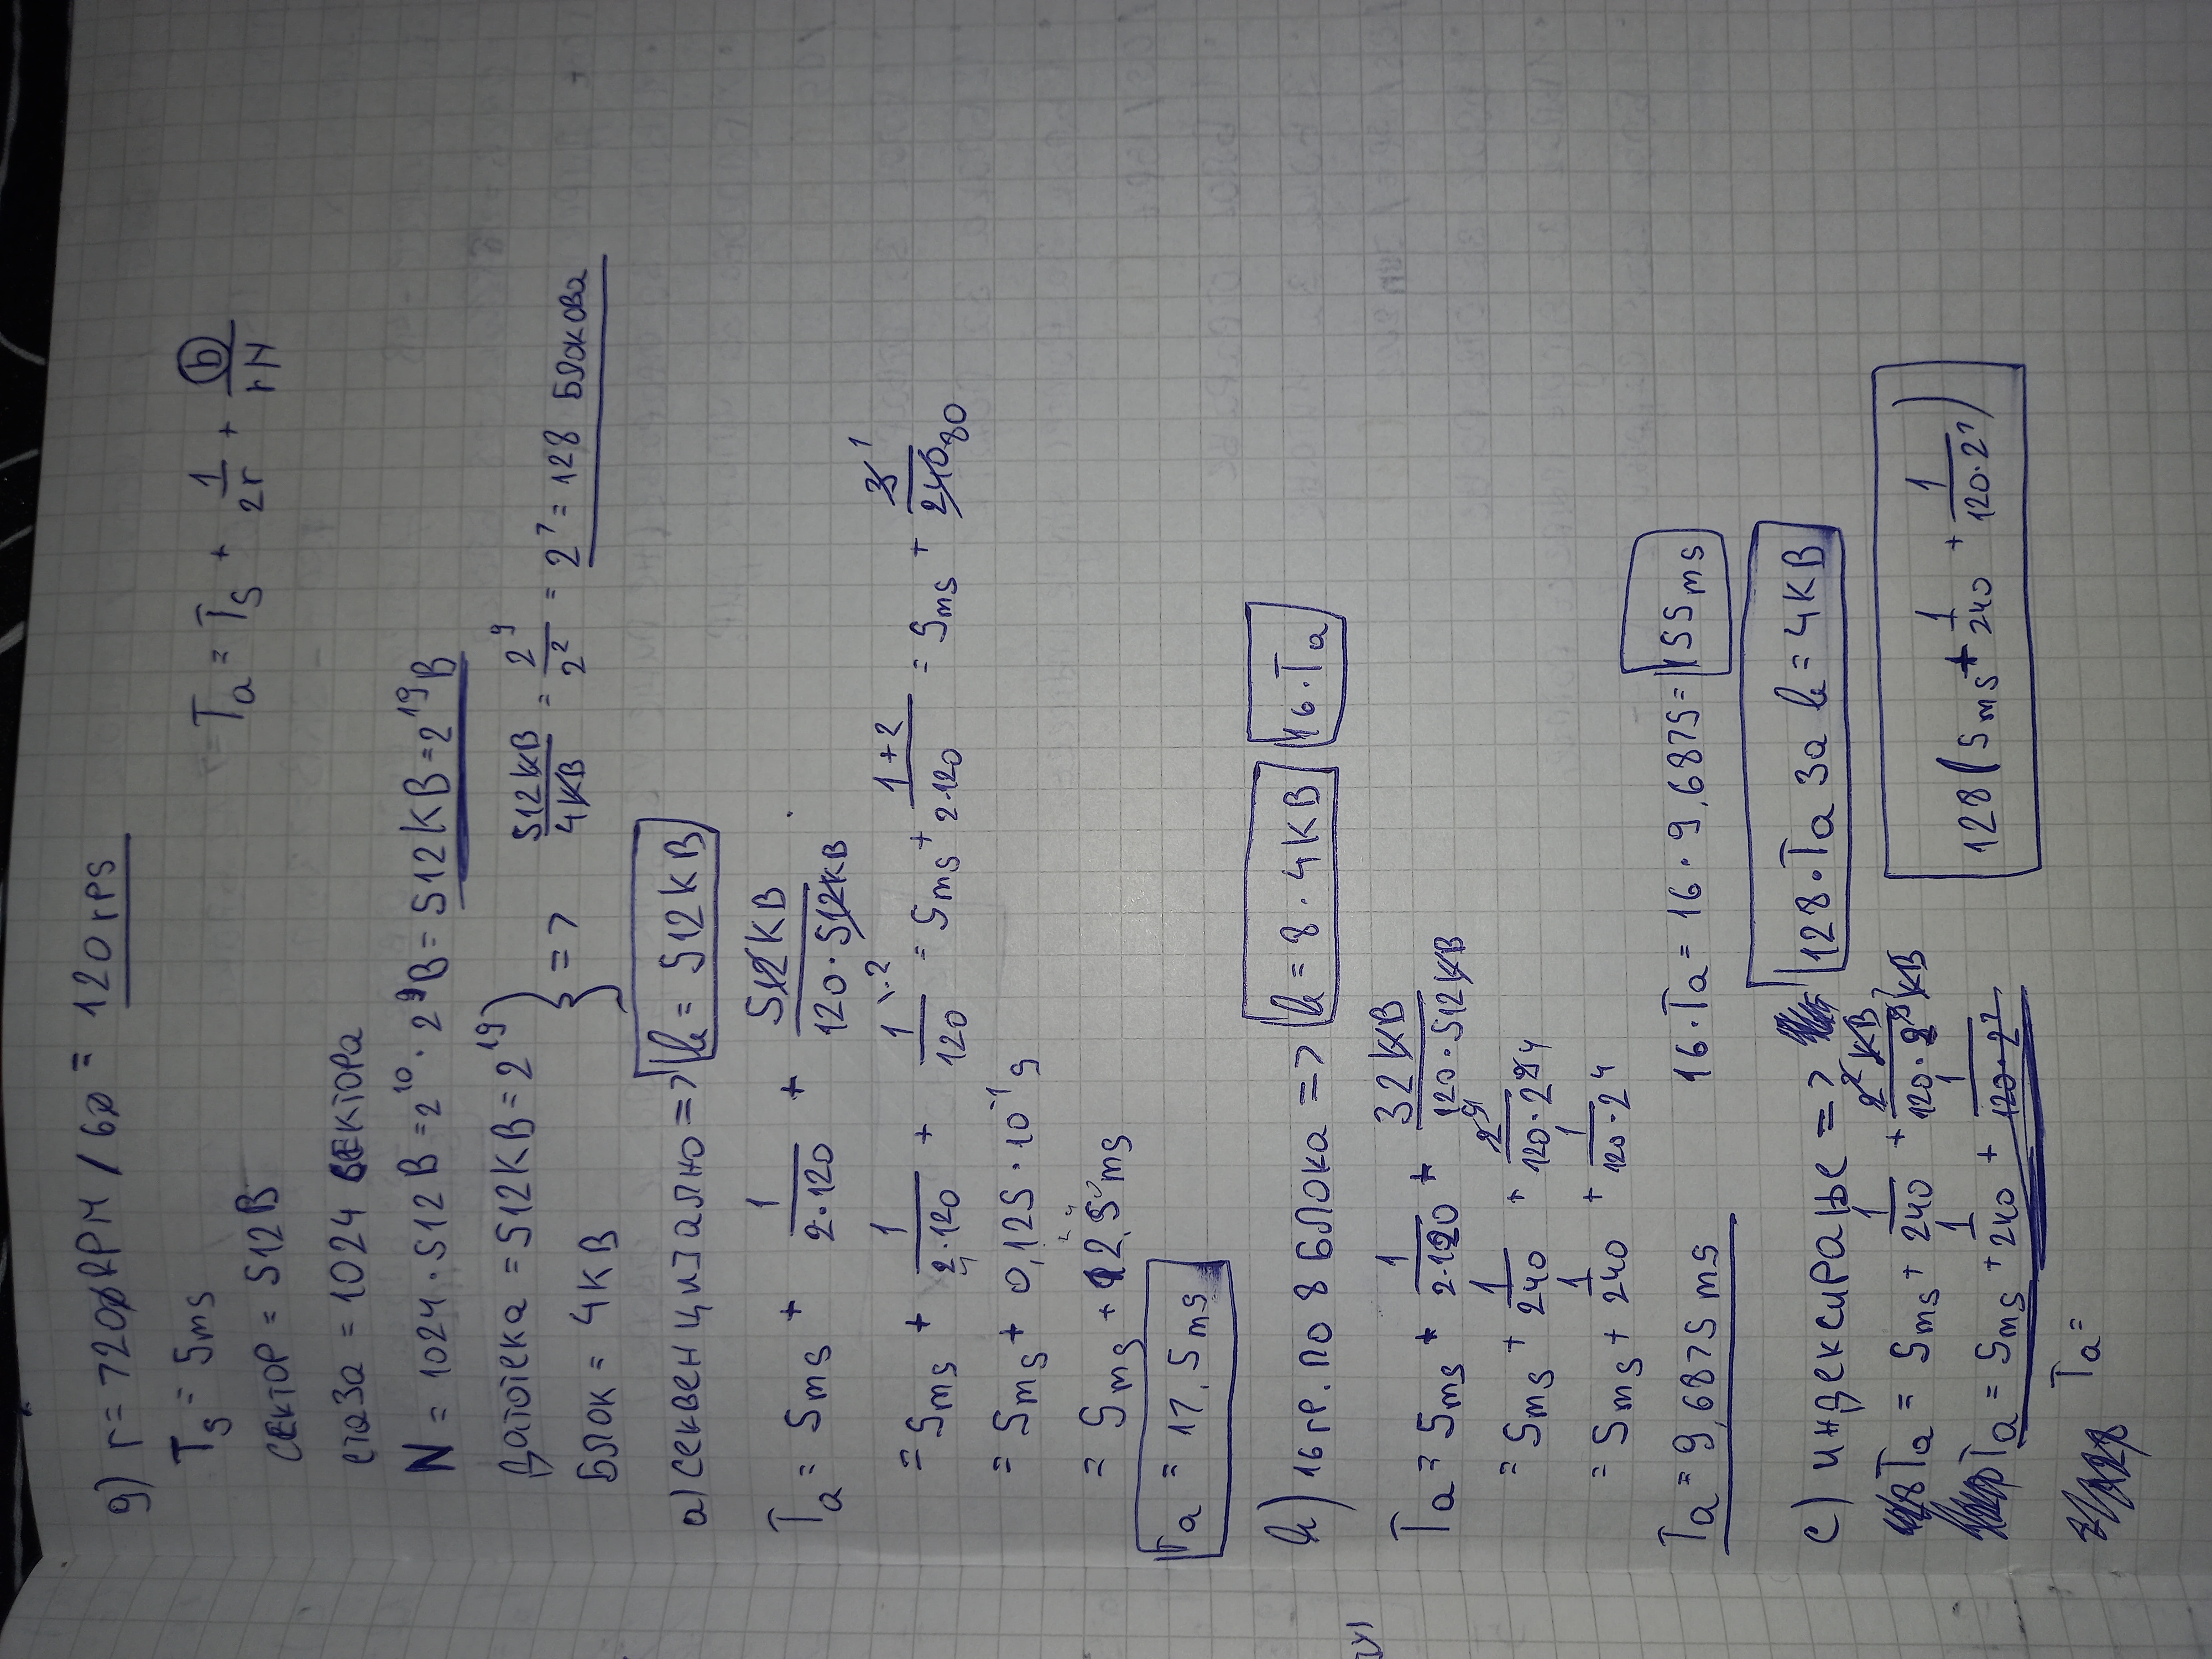 9) r = 7200 RPM / 60 = 120 rps
Ts = 5ms
Ta = Ts + 1/2r + b/rN
сектор = 512B
стаза = 1024 сектора
N = 1024 · 512B = 2^10 · 2^9 B = 512KB = 2^19 B
датотека = 512KB = 2^19
блок = 4KB
=> 512KB/4KB = 2^9/2^2 = 2^7 = 128 блокова
a) секвенцизално => b = 512KB
Ta = 5ms + 1/2·120 + 512KB/120·512KB
= 5ms + 1/2·120 + 1/120 \·2 = 5ms + 1+2/2·120 = 5ms + 3/240 1 80
= 5ms + 0,125 · 10^-1 s
= 5ms + 12.5 ms
Ta = 17.5ms
b) 16 гр. по 8 блока => b = 8 · 4KB 16·Ta
Ta = 5ms + 1/2·120 + 32KB/120·512KB
= 5ms + 1/240 + 2^5/120·2^9 4
= 5ms + 1/240 + 1/120·2^4
Ta = 9,6875 ms 16·Ta = 16 · 9,6875 = 155ms
c) индексирање => 128·Ta за b = 4KB
Ta = 5ms + 1/240 + 2^2 KB/120·2^9 KB
Ta = 5ms + 1/240 + 1/120·2^7
128(5ms + 1/240 + 1/120·2^7)
Ta =